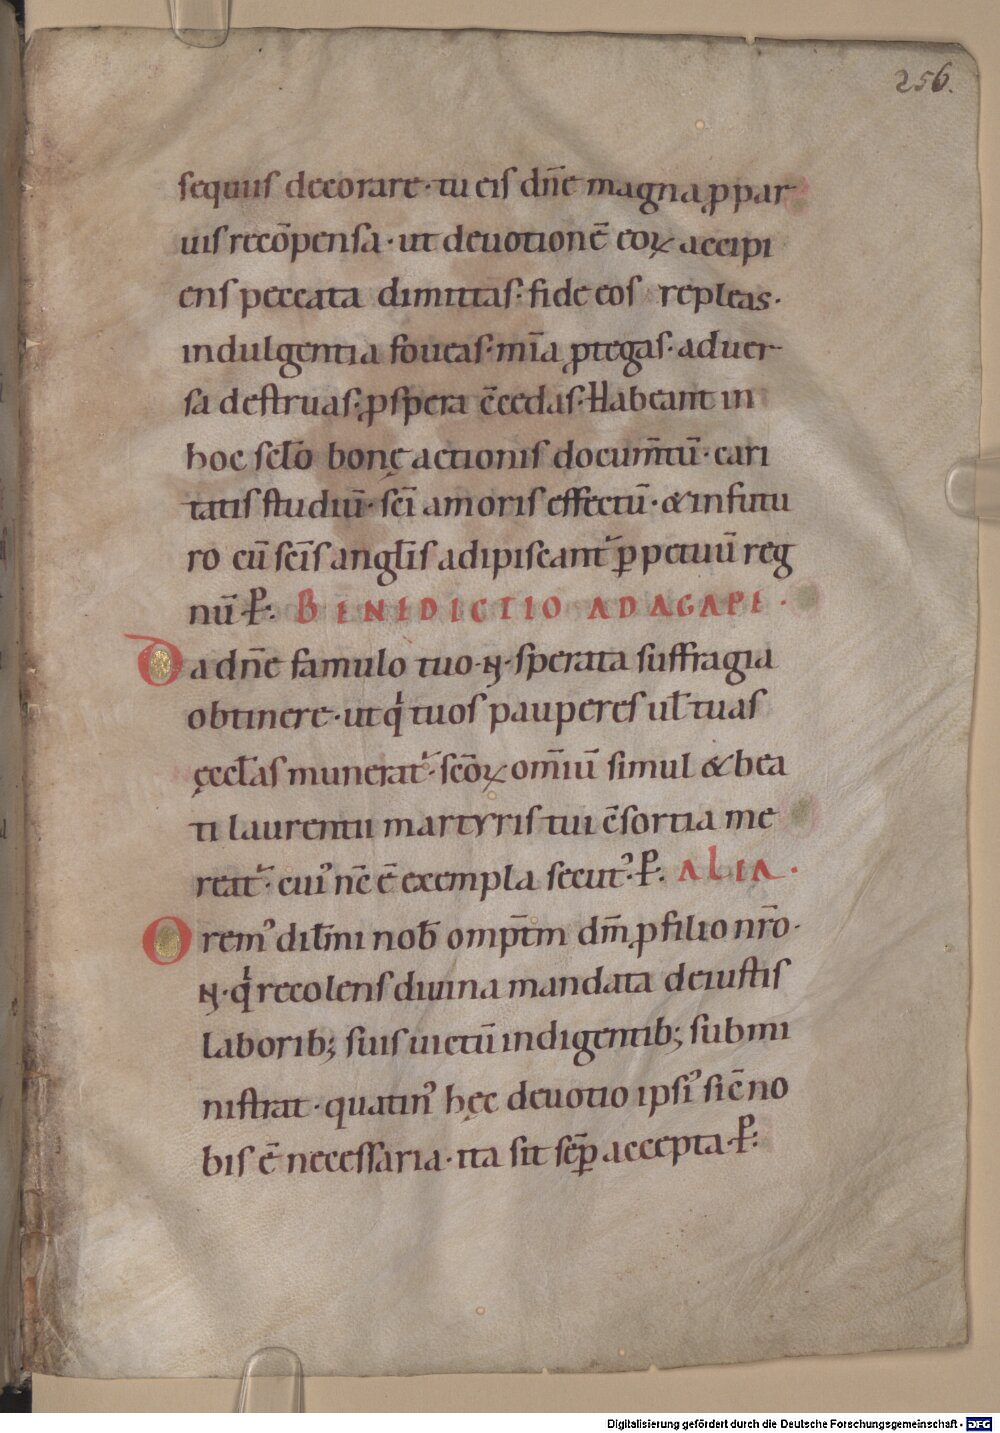 256.
sequiis decorare · tu eis dn̄e magna ꝓ par
uis recōpensa · ut deuotionē eoꝝ accipi
ens peccata dimittas · fide eos repleas ·
indulgentia foueas · mīa ꝓtegas · aduer-
sa destruas · ꝓspera c̄cedas · Habeant in
hoc scl̄o bonę actionis docum̄tū · cari
tatis studiū · sc̄i amoris effectū · & in futu
ro cū sc̄is angl̄is adipiscant᷑ ꝑpetuū reg
nū · P̄ · BENEDICTIO AD AGAPE ·
Da dn̄e famulo tuo · N · sperata suffragia
obtinere · ut qͥ tuos pauperes ul̄ tuas
ęccl̄as munerat᷑ · sc̄oꝝ om̄iū simul & bea
ti laurentii martyris tui c̄sortia me
reat᷑ · cuiꝰ nc̄ ē exempla secutꝰ · P̄ · ALIA ·
Oremꝰ dil̄mi nob̄ omp̄tm dm̄ ꝓ filio nr̄o ·
N · qͥ recolens diuina mandata de iustis
laborib; suis uictū indigentib; submi
nistrat · quatinꝰ hęc deuotio ipsiꝰ sic̄ no
bis ē necessaria · ita sit sēꝑ accepta · P̄ ·
Digitalisierung gefördert durch die Deutsche Forschungsgemeinschaft - DFG